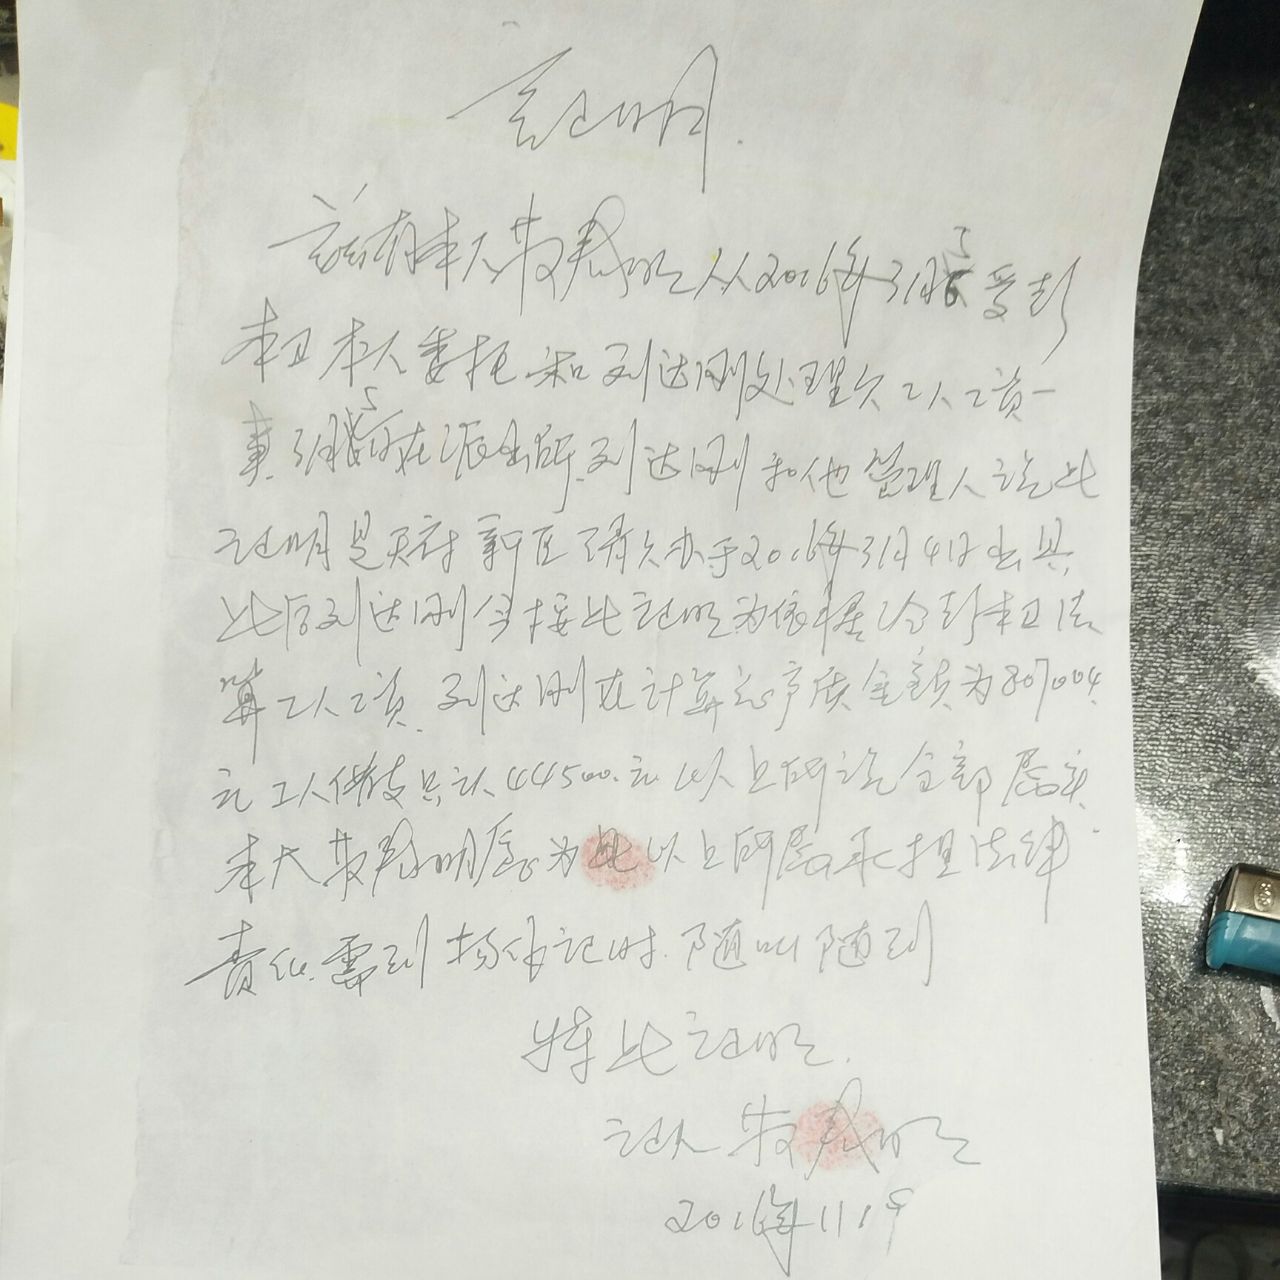 证明
兹有本人黄君明从2016年3月5受彭
本卫本人委托和刘达刚处理欠工人工资一
事.3月5日在派出所.刘达刚和他管理人说此
证明是天府新区清欠办于2016年3月4日出具
此后刘达刚会按此证明为依据给彭本卫结
算工人工资.刘达刚在计算总产值金额为807004.
元工人借支只认44500.元以上所说全部属实.
本人黄君明愿为此以上所属承担法律
责任.需到场作证时.随叫随到
特此证明.
证人黄君明
2016年11.19